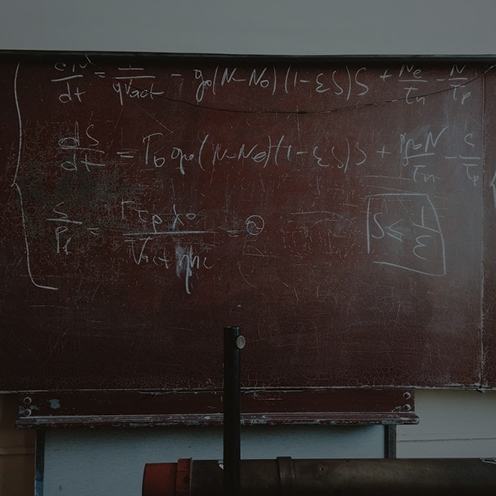 dN/dt = I/qVact - g0(N-N0)(1-εS)S + Ne/τn - N/τp
dS/dt = Γ0 g0(N-N0)(1-εS)S + Γβ0N/τn - S/τp
S/Pf = Γτpλ0/Vact ηhc = ϑ
S ≤ 1/ε